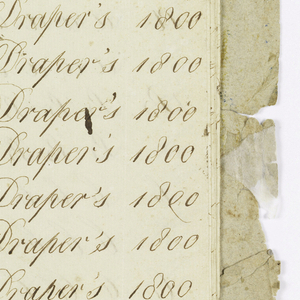 Draper's 1800
Draper's 1800
Draper's 1800
Draper's 1800
Draper's 1800
Draper's 1800
Draper's 1800